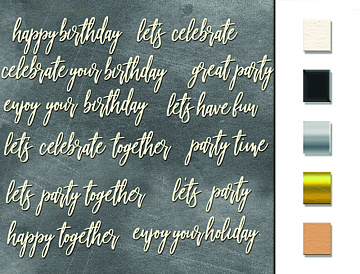 happy birthday lets celebrate
celebrate your birthday great party
enjoy your birthday lets have fun
lets celebrate together party time
lets party together let's party
happy together enjoy your holiday